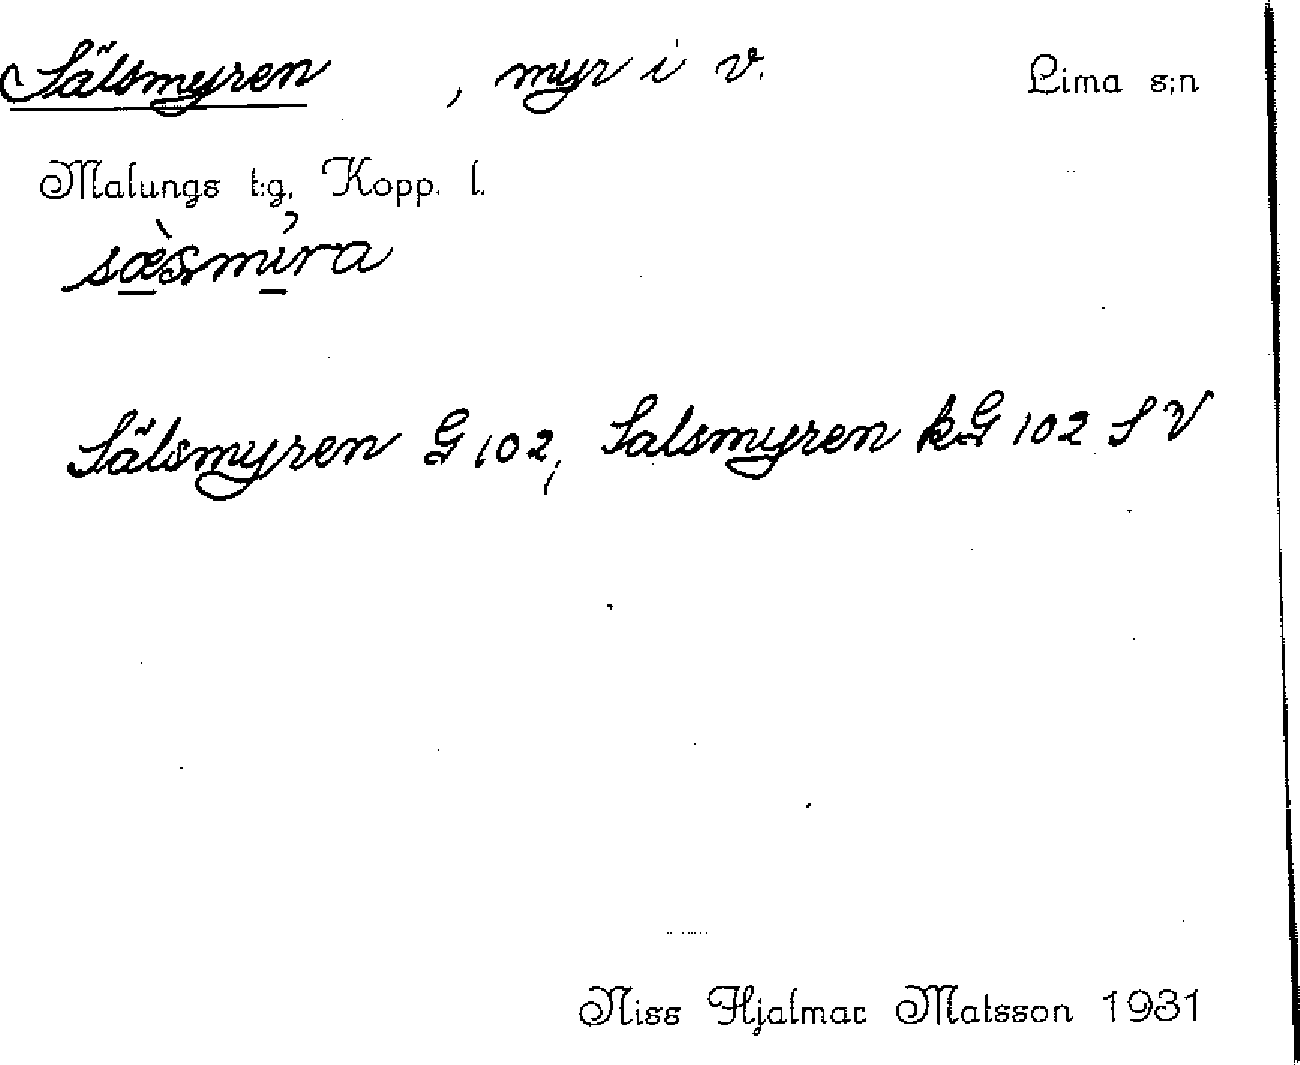 Sälsmyren, myr i v. Lima s:n
Malungs t:g, Kopp. l.
sæ̀smíra
Sälsmyren G 102, Salsmyren kG 102 S V
Niss Hjalmar Matsson 1931